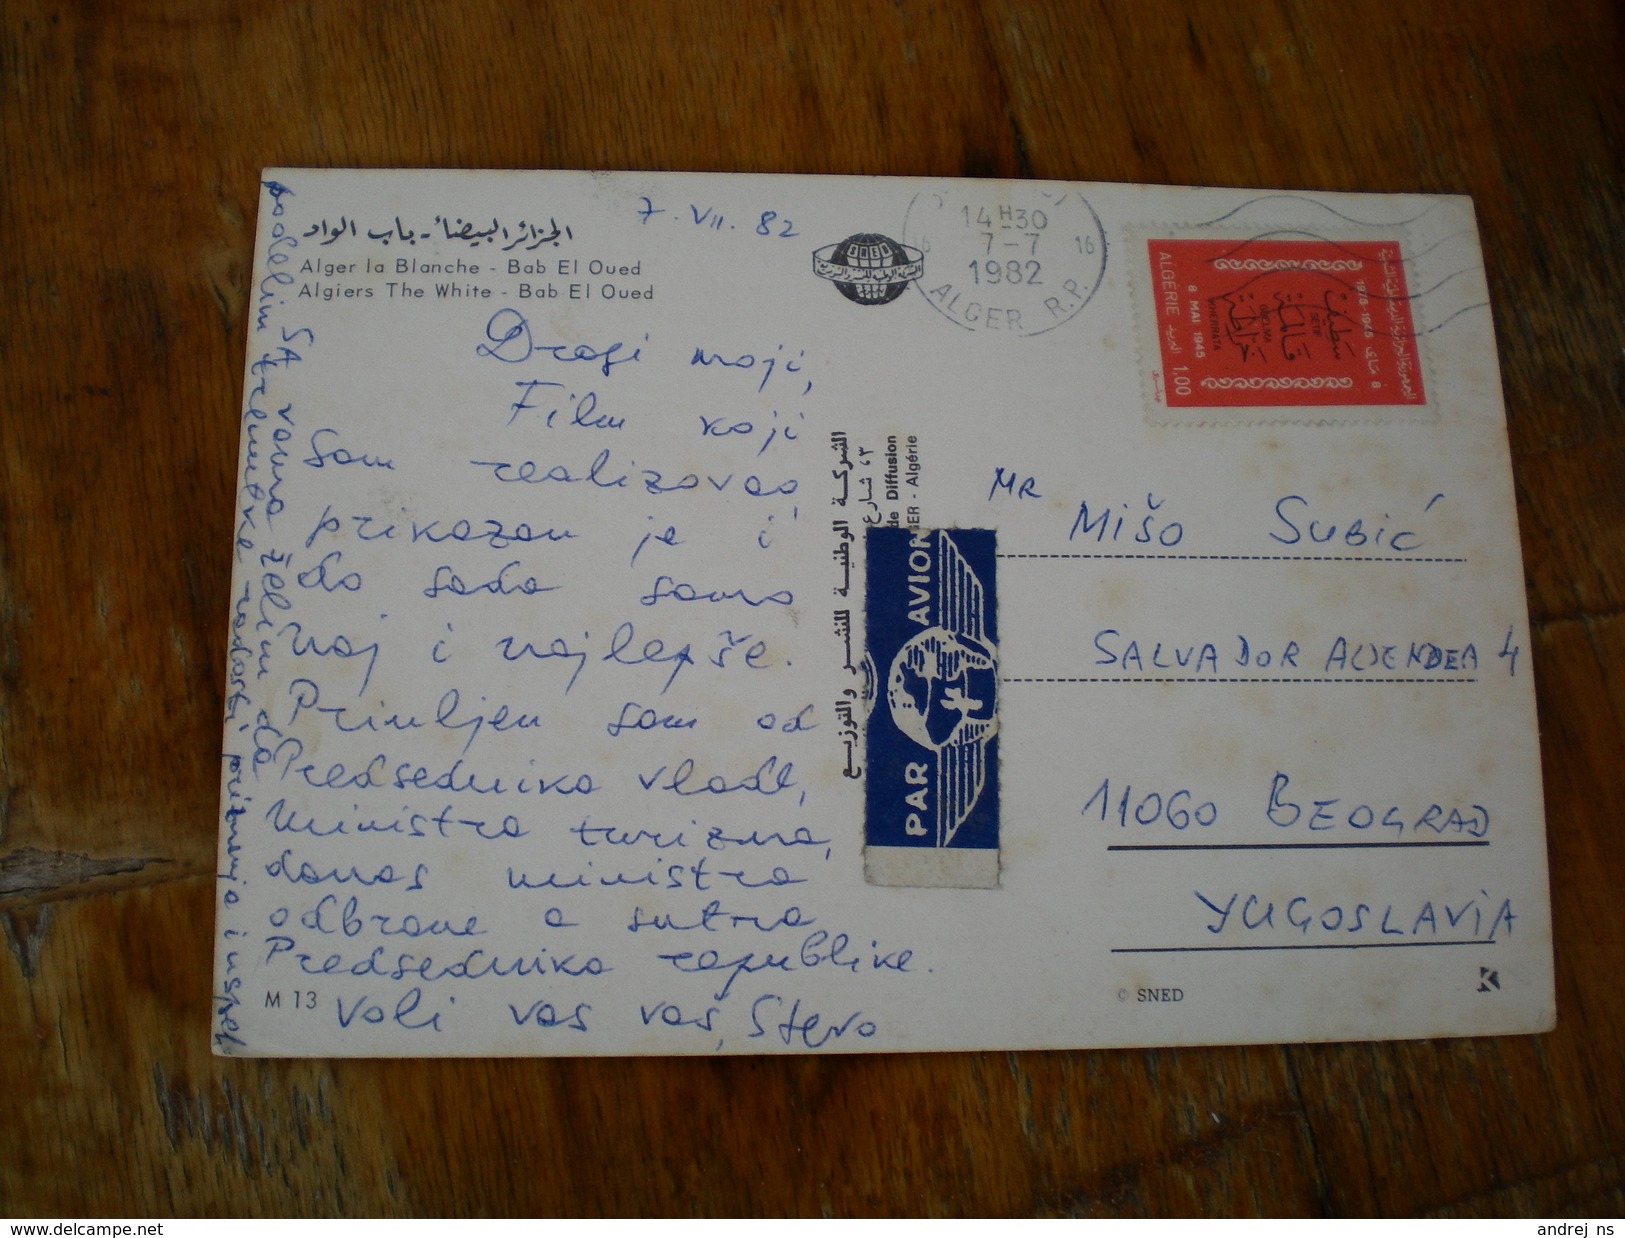 الجزائر البيضاء - باب الواد
Alger la Blanche - Bab El Oued
Algiers The White - Bab El Oued
7. VII. 82
Dragi moji,
Film koji
sam realizovao,
prikazan je i
do sada samo
naj i najlepše.
Primljen sam od
Predsednika vlade,
ministra turizma,
danas ministra
odbrane a sutra
Predsednika republike.
Voli vas vaš, Stevo
M 13
SA vama želim da
podelim trenutke radosti priznanja i uspeh
SNED
14H30
7-7
1982
16 16
ALGER R.P.
ALGÉRIE 1,00
8 MAI 1945
1975-1945
8 ماي
SETIF
GUELMA
KHERRATA
سطيف
قالمة
خراطة
البريد
الشركة الوطنية للنشر والتوزيع
٣، شارع
de Diffusion
GER - Algérie
PAR AVION
MR
MIŠO SUBIĆ
SALVADOR ALJENDEA 4
11060 BEOGRAD
YUGOSLAVIA
© SNED
K
delcampe.net
andrej ns